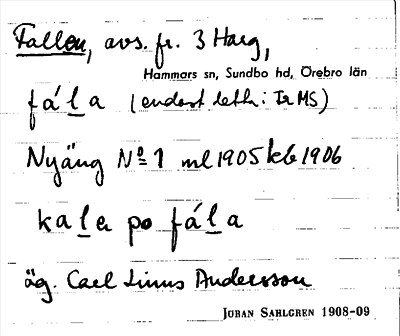 Fallen, avs. fr. 3 Harg,
Hammars sn, Sundbo hd, Örebro län
fá́la (endast : Ta MS)
Nyäng No 1 ml 1905 kb 1906
kala po fála
äg. Carl Linus Andersson
JÖRAN SAHLGREN 1908-09